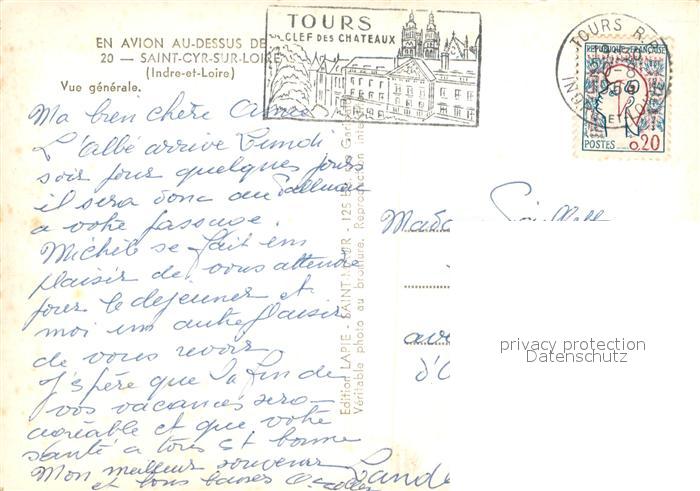 TOURS
CLEF DES CHATEAUX
TOURS R.P.
REPUBLIQUE FRANÇAISE
POSTES 0,20
EN AVION AU-DESSUS DE
20 — SAINT-CYR-SUR-LOIRE
(Indre-et-Loire)
Vue générale.
Ma bien chère
L'Abbé arrive Lundi
soir pour quelques jours
il sera donc au
a votre passage.
Michèle se fait un
plaisir de vous attendre
pour le dejeuner et
moi un autre plaisir
de vous revoir
J'éspère que la fin de
vos vacances sera
agréable et que votre
santé a tous est bonne
Mon meilleur souvenir
et bons baisers
Edition LAPIE - SAINT-MAUR - 125
Véritable photo au bromure. Reproduction
Mada
d'O
privacy protection
Datenschutz